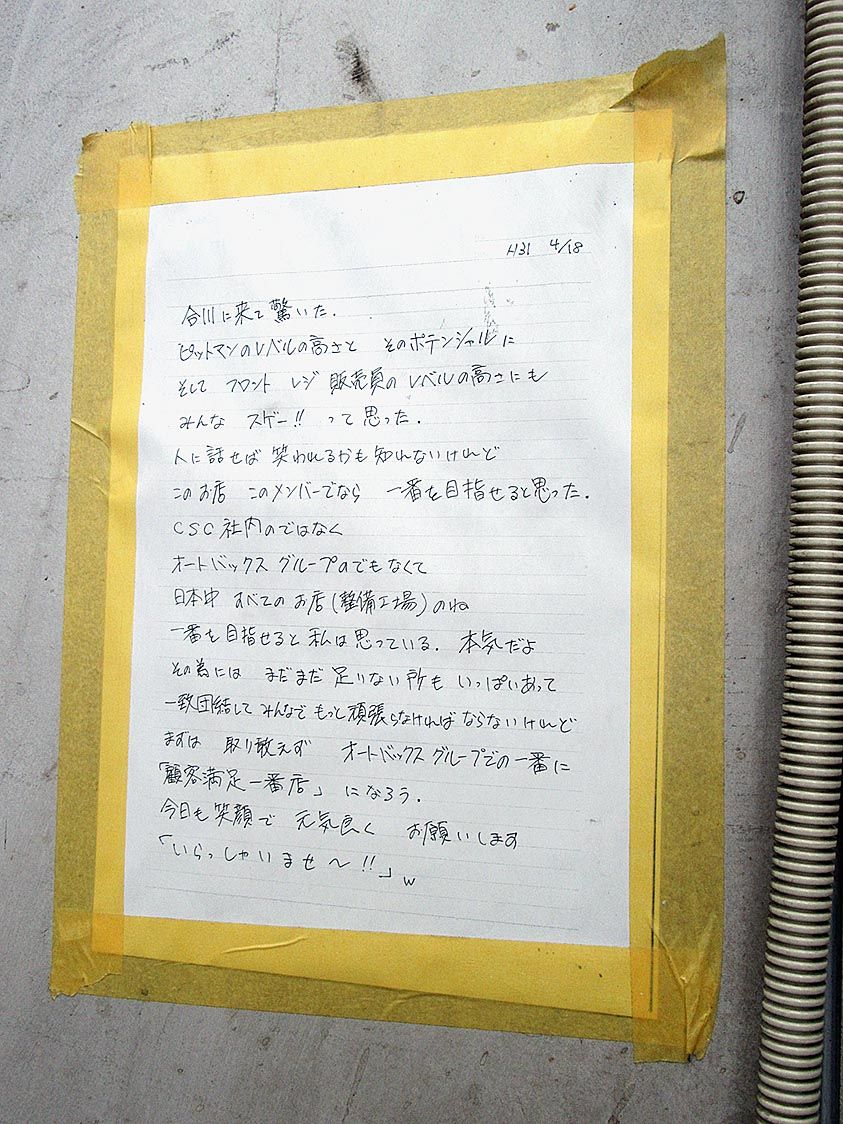 H31 4/18
合川に来て驚いた.
ピットマンのレベルの高さと そのポテンシャルに
そして フロント レジ 販売員のレベルの高さにも
みんな スゲー!! って思った.
人に話せば 笑われるかも知れないけれど
このお店 このメンバーでなら 一番を目指せると思った.
CSC社内のではなく
オートバックス グループのでもなくて
日本中 すべてのお店(整備工場)のね
一番を目指せると私は思っている. 本気だよ
その為には まだまだ 足りない所も いっぱいあって
一致団結して みんなで もっと頑張らなければならないけれど
まずは 取り敢えず オートバックスグループでの一番に
「顧客満足一番店」になろう.
今日も笑顔で 元気良く お願いします
「いらっしゃいませ〜!!」w